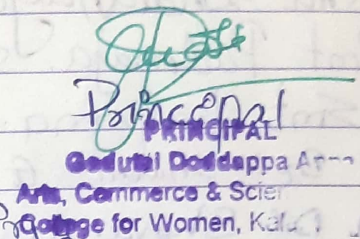 Principal
PRINCIPAL
Godutai Doddappa
Arts, Commerce &
College for Women,